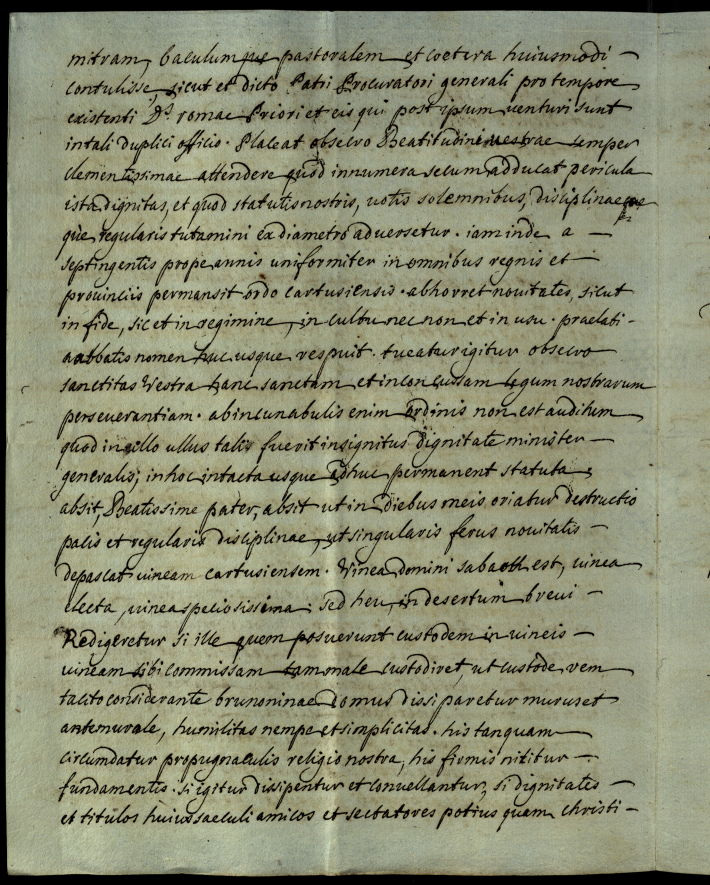 mitram, baculumque pastoralem et coetera huiusmodi -
contulisse, sicut et dicto Patri Procuratori generali pro tempore
existenti Ds romae Priori et eis qui post ipsum venturi sunt
in tali duplici officio. Placeat obsecro Beatitudini vestrae semper
clementissimae attendere quod innumera secum adducat pericula
ista dignitas, et quod statutis nostris, votis solemnibus, disciplinae
que regularis tutamini ex diametro adversetur. iam inde a -
septingentis prope annis uniformiter in omnibus regnis et -
provinciis permansit ordo cartusiensis. abhorret novitates, sicut
in fide, sic et in regimine, in cultu nec non et in usu. praelati -
aabbatis nomen huc usque respuit. tueatur igitur obsecro
sanctitas Vestra hanc sanctam et inconcussam legum nostrarum
perseverantiam. ab incunabulis enim ordinis non est auditum
quod in illo ullus talis fuerit insignitus dignitate minister -
generalis; in hoc intacta usque adhuc permanent statuta;
absit, Beatissime pater, absit ut in diebus meis oriatur destructio
pacis et regularis disciplinae, ut singularis ferus novitatis -
depascat vineam cartusiensem. Vinea domini sabaoth est, vinea
electa, vinea speciosissima; sed heu, in desertum brevi -
Redigeretur si ille quem posuerunt custodem in vineis -
vineam sibi commissam tam male custodiret, ut custode vem
tacito considerante brunoninae domus dissiparetur murus et
antemurale, humilitas nempe et simplicitas. his tanquam
circumdatur propugnaculis religio nostra, his firmis nititur -
fundamentis. si igitur dissipentur et convellantur, si dignitates -
et titulos huius saeculi amicos et sectatores potius quam christi -